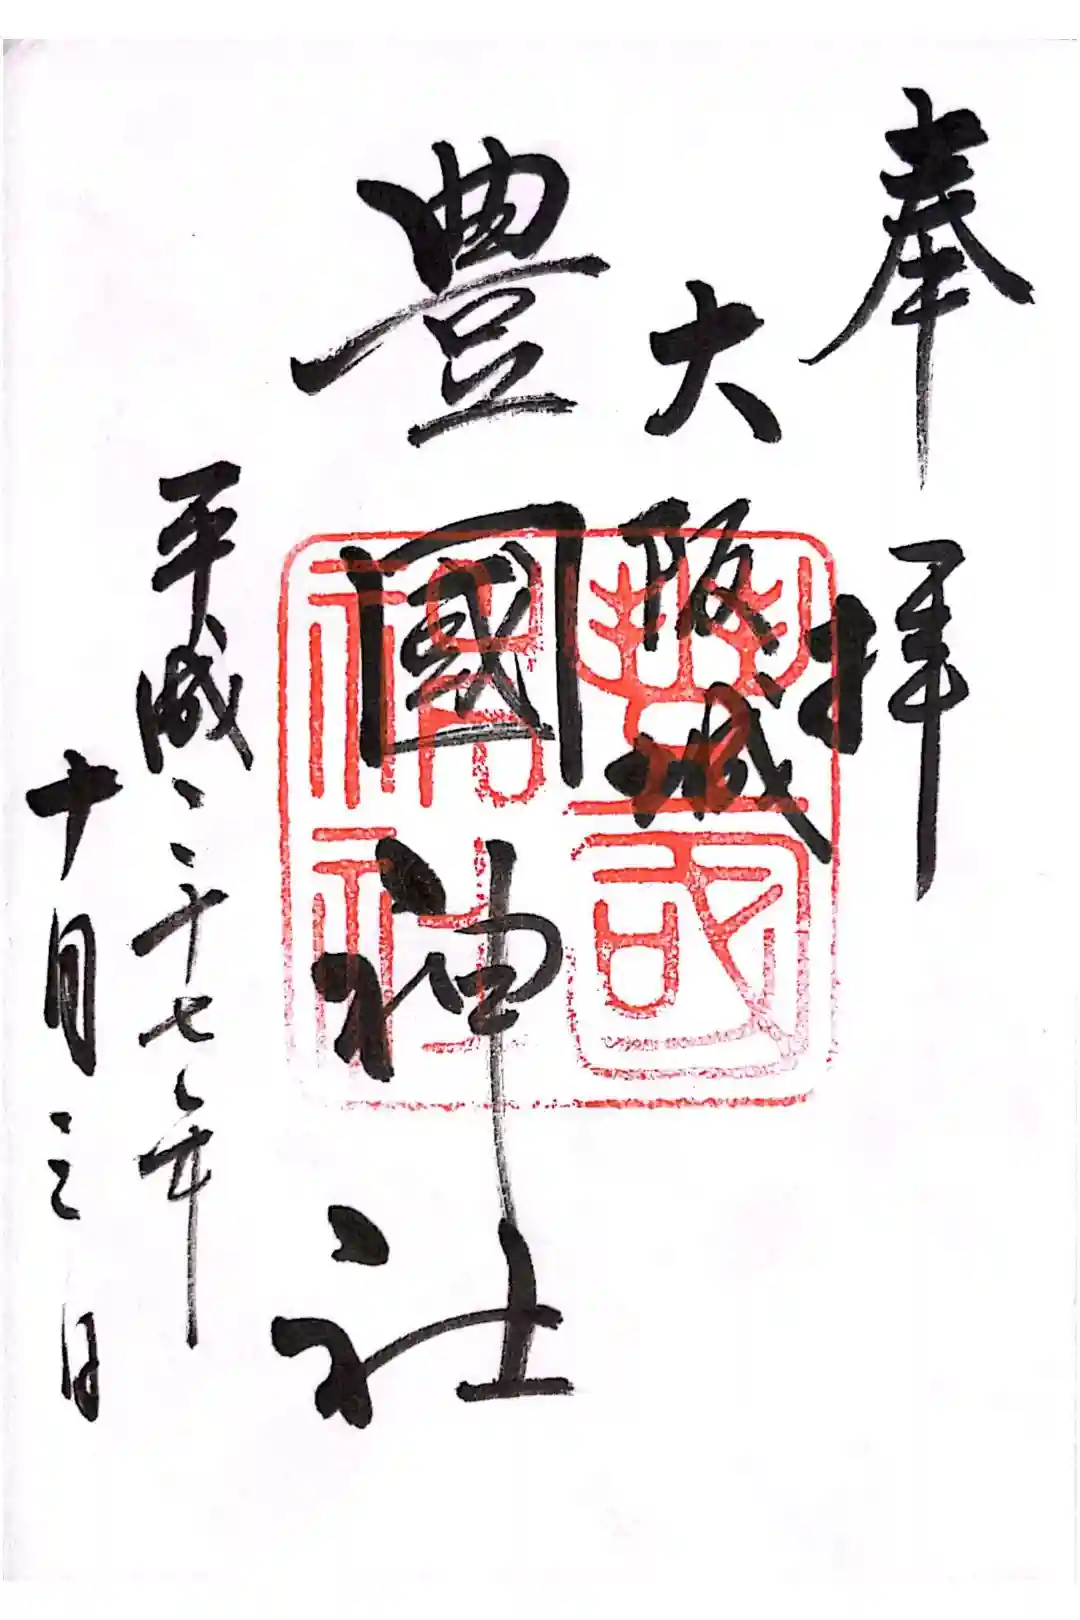 奉拝
大阪城
豊國神社
平成二十七年
十月三日
豊國神社